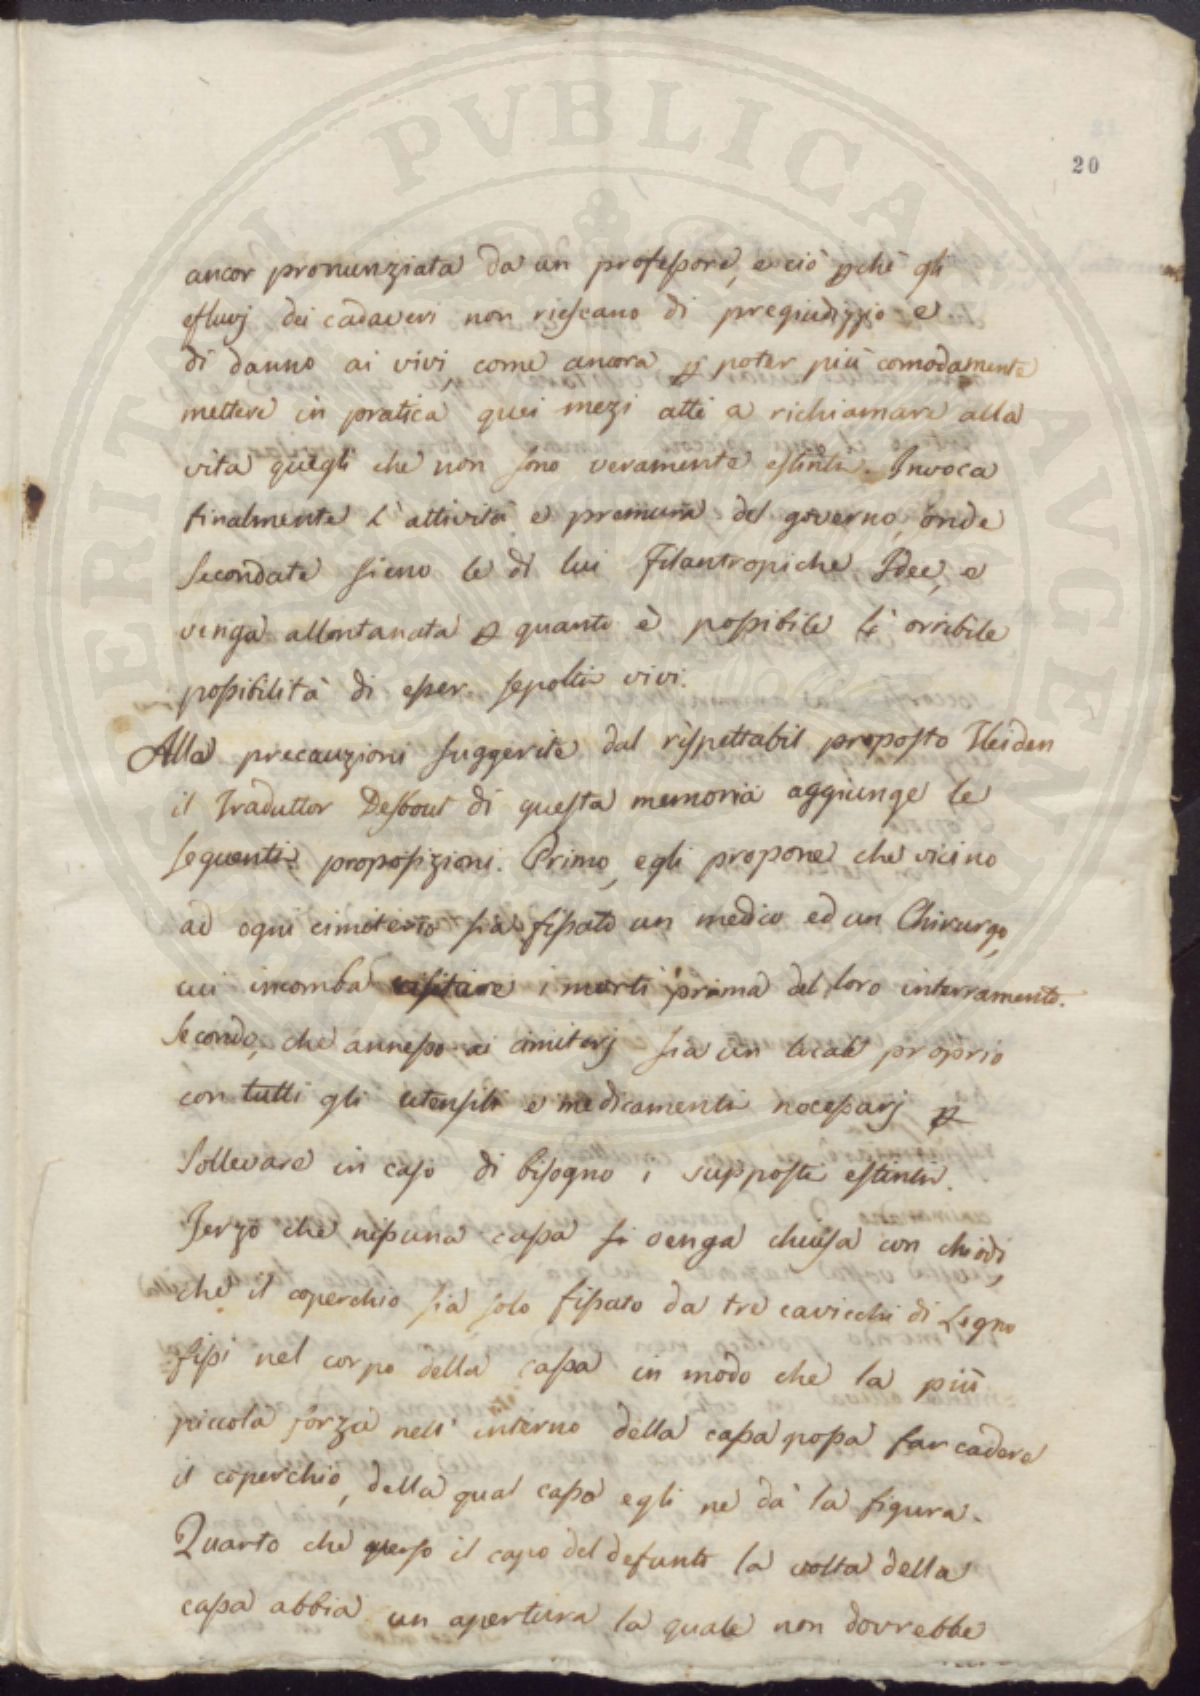 20
ancor pronunziata da un professore, e ciò pchè gli
effluvj dei cadaveri non riescano di pregiudizzio e
di danno ai vivi, come ancora p poter più comodamente
mettere in pratica quei mezi atti a richiamare alla
vita quegli che non sono veramente estinti. Invoca
finalmente l'attività e premura del governo, onde
secondate sieno le di lui Filantropiche Idee, e
venga allontanata p quanto è possibile l'orribile
possibilità di esser sepolti vivi.
Alle precauzioni suggerite dal rispettabil proposto Heiden
il Traduttor Desbout di questa memoria aggiunge le
seguenti proposizioni. Primo, egli propone che vicino
ad ogni cimiterio sia fissato un medico ed un Chirurgo,
cui incomba visitare i morti prima del loro interramento.
Secondo, che annesso ai cimiterj sia un locale proprio
con tutti gli utensili e medicamenti necessarj p
sollevare in caso di bisogno i supposti estinti.
Terzo che nissuna cassa si venga chiusa con chiodi,
che il coperchio sia solo fissato da tre cavicchi di Legno
fissi nel corpo della cassa in modo che la più
piccola forza nell'interno della cassa possa far cadere
il coperchio, della qual cassa egli ne dà la figura.
Quarto che verso il capo del defunto la volta della
cassa abbia un apertura la quale non dovrebbe